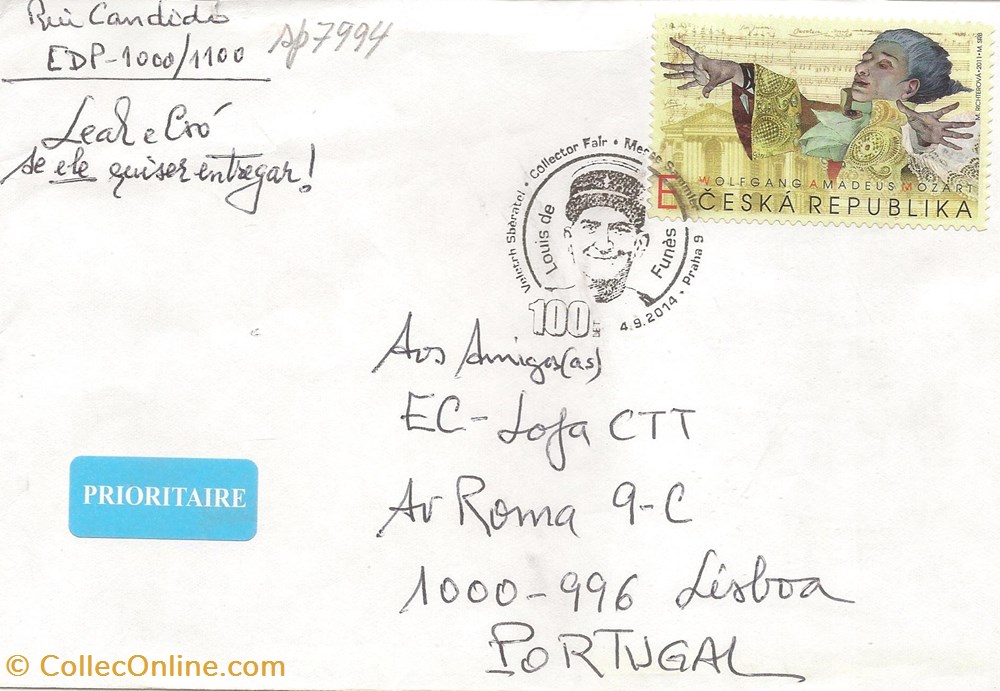 Rui Candido
EDP-1000/1100
Ap7994
Leal e Cró
se ele quiser entregar!
M. RICHTEROVÁ • 2011 • M. SRB
WOLFGANG AMADEUS MOZART
E ČESKÁ REPUBLIKA
Veletrh Sběratel • Collector Fair • Messe Sammler • Praha 9
4.9.2014
Louis de Funès
100 LET
Aos Amigos(as)
EC-Loja CTT
Av Roma 9-C
1000-996 Lisboa
PORTUGAL
PRIORITAIRE
© CollecOnline.com